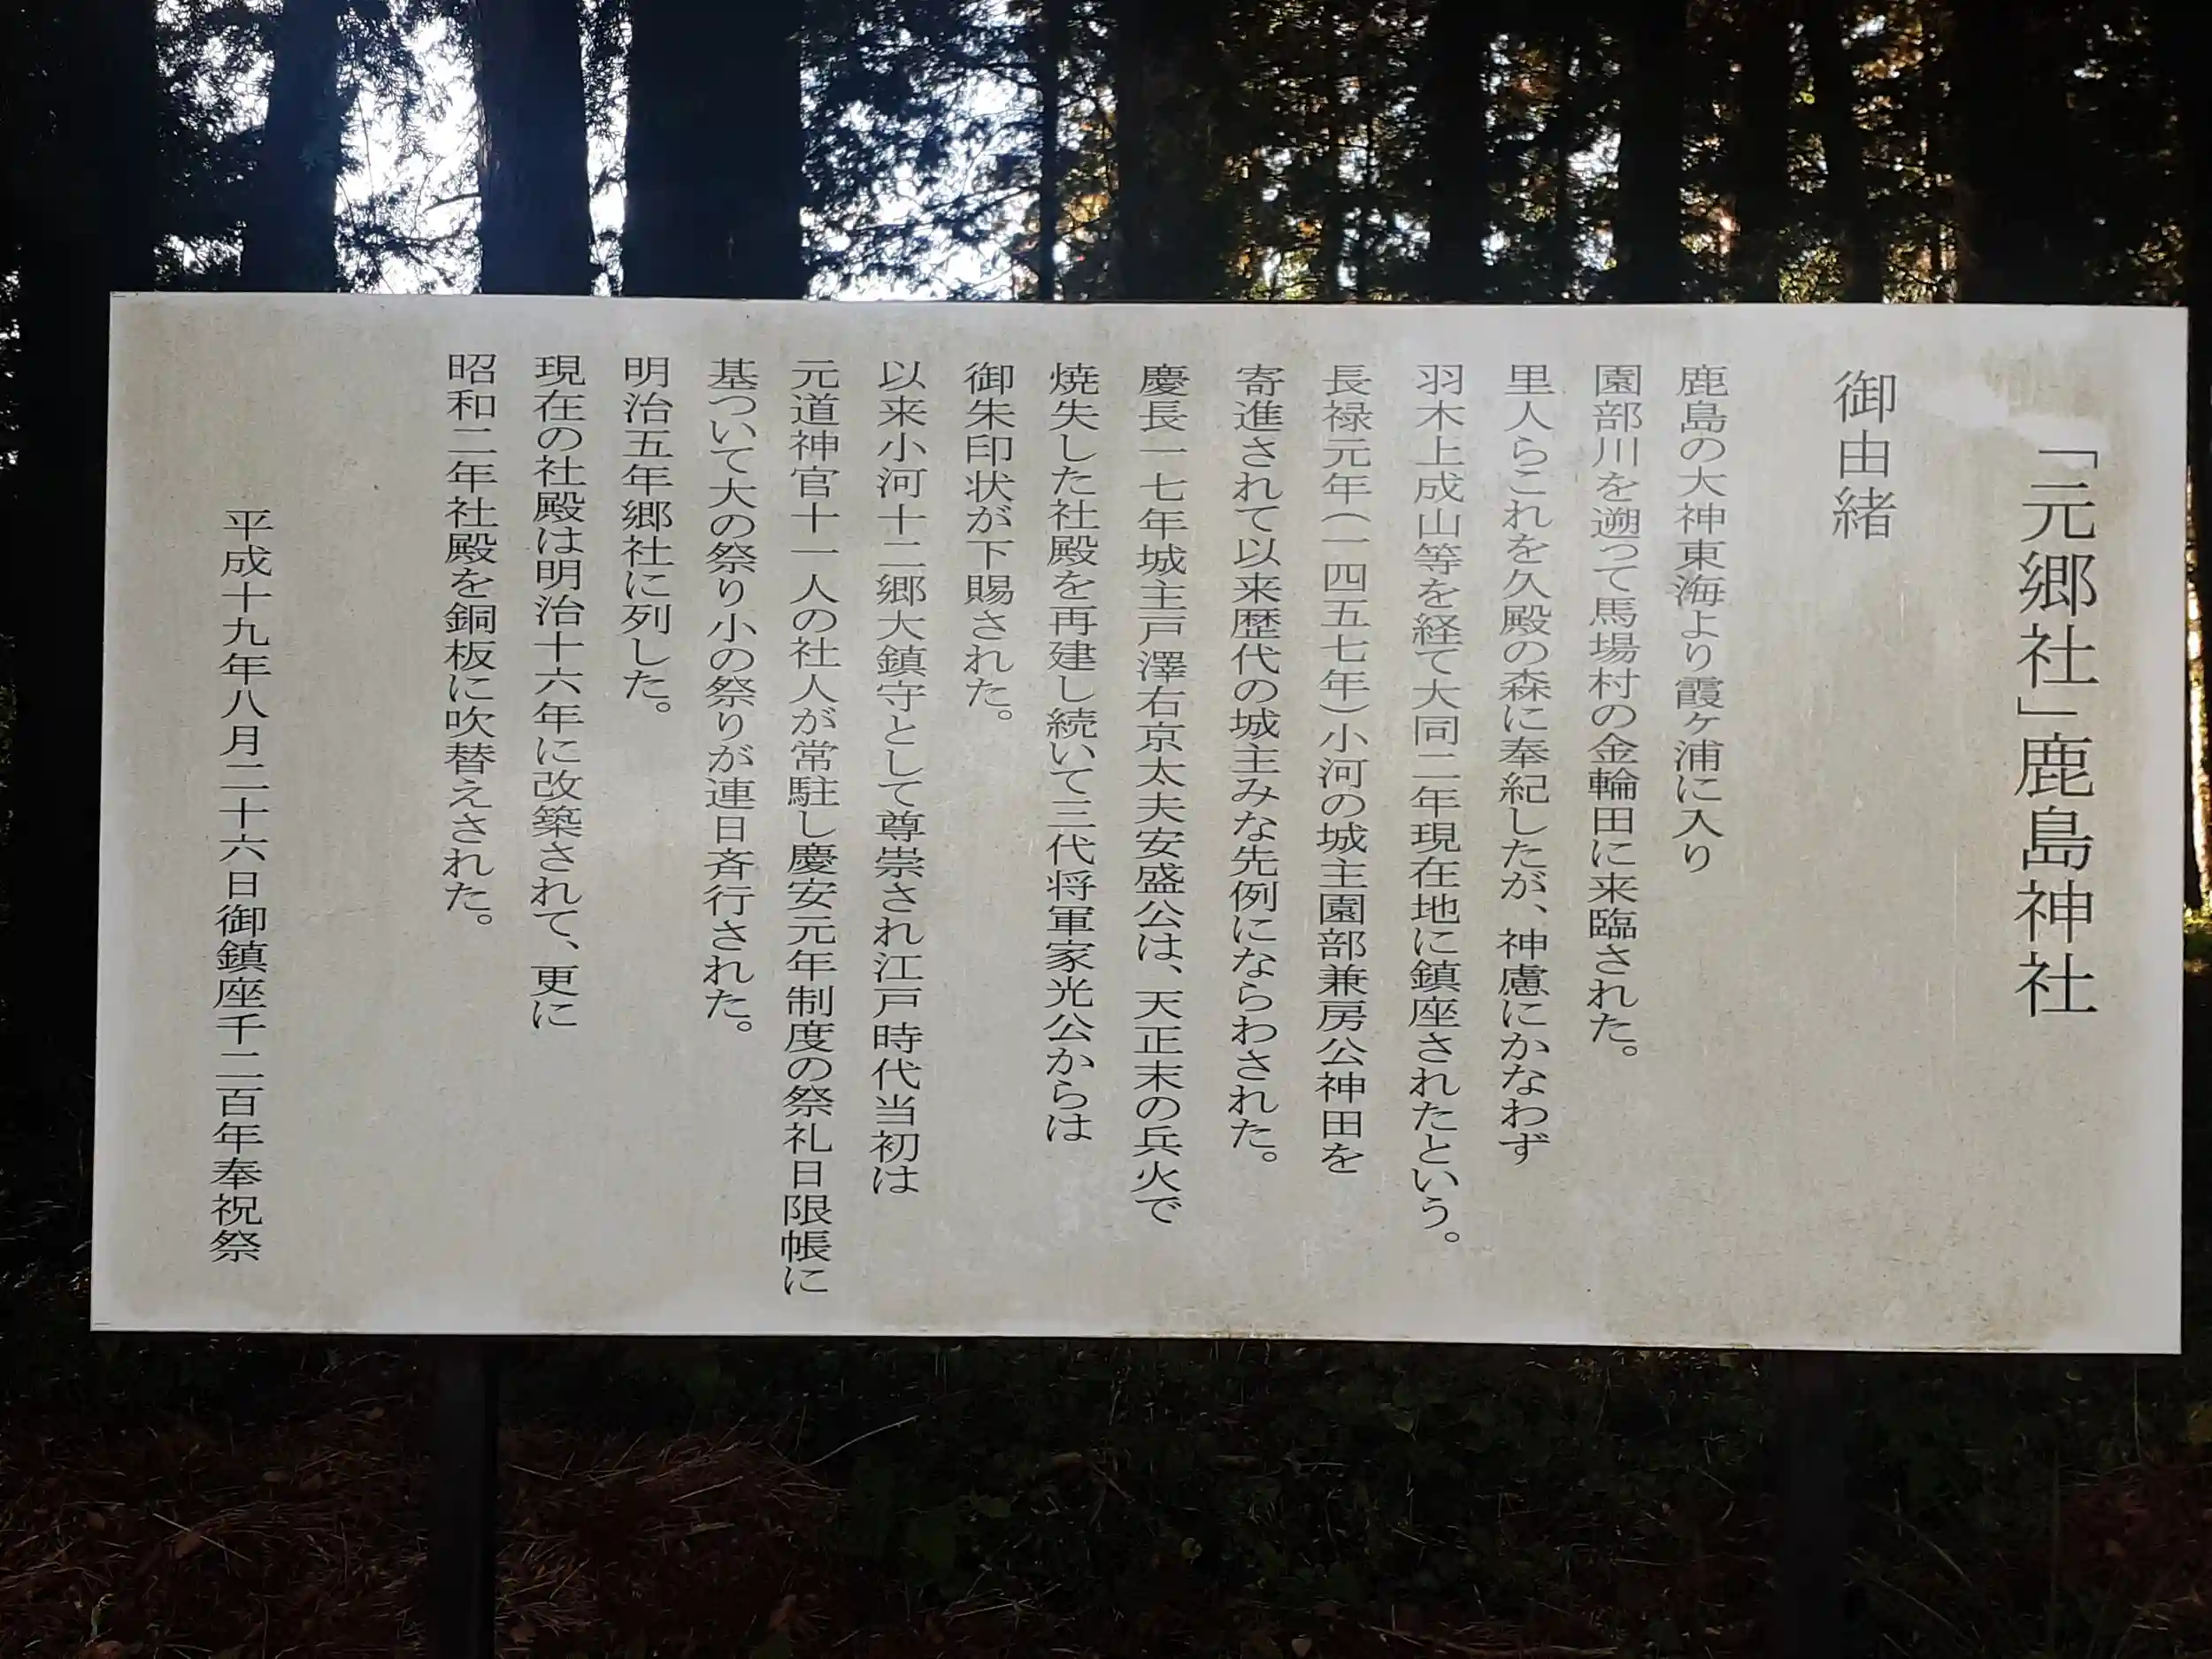 「元郷社」鹿島神社
御由緒
鹿島の大神東海より霞ヶ浦に入り
園部川を遡って馬場村の金輪田に来臨された。
里人らこれを久殿の森に奉紀したが、神慮にかなわず
羽木上成山等を経て大同二年現在地に鎮座されたという。
長禄元年（一四五七年）小河の城主園部兼房公神田を
寄進されて以来歴代の城主みな先例にならわされた。
慶長一七年城主戸澤右京太夫安盛公は、天正末の兵火で
焼失した社殿を再建し続いて三代将軍家光公からは
御朱印状が下賜された。
以来小河十二郷大鎮守として尊崇され江戸時代当初は
元道神官十一人の社人が常駐し慶安元年制度の祭礼日限帳に
基ついて大の祭り小の祭りが連日斉行された。
明治五年郷社に列した。
現在の社殿は明治十六年に改築されて、更に
昭和二年社殿を銅板に吹替えされた。
平成十九年八月二十六日御鎮座千二百年奉祝祭